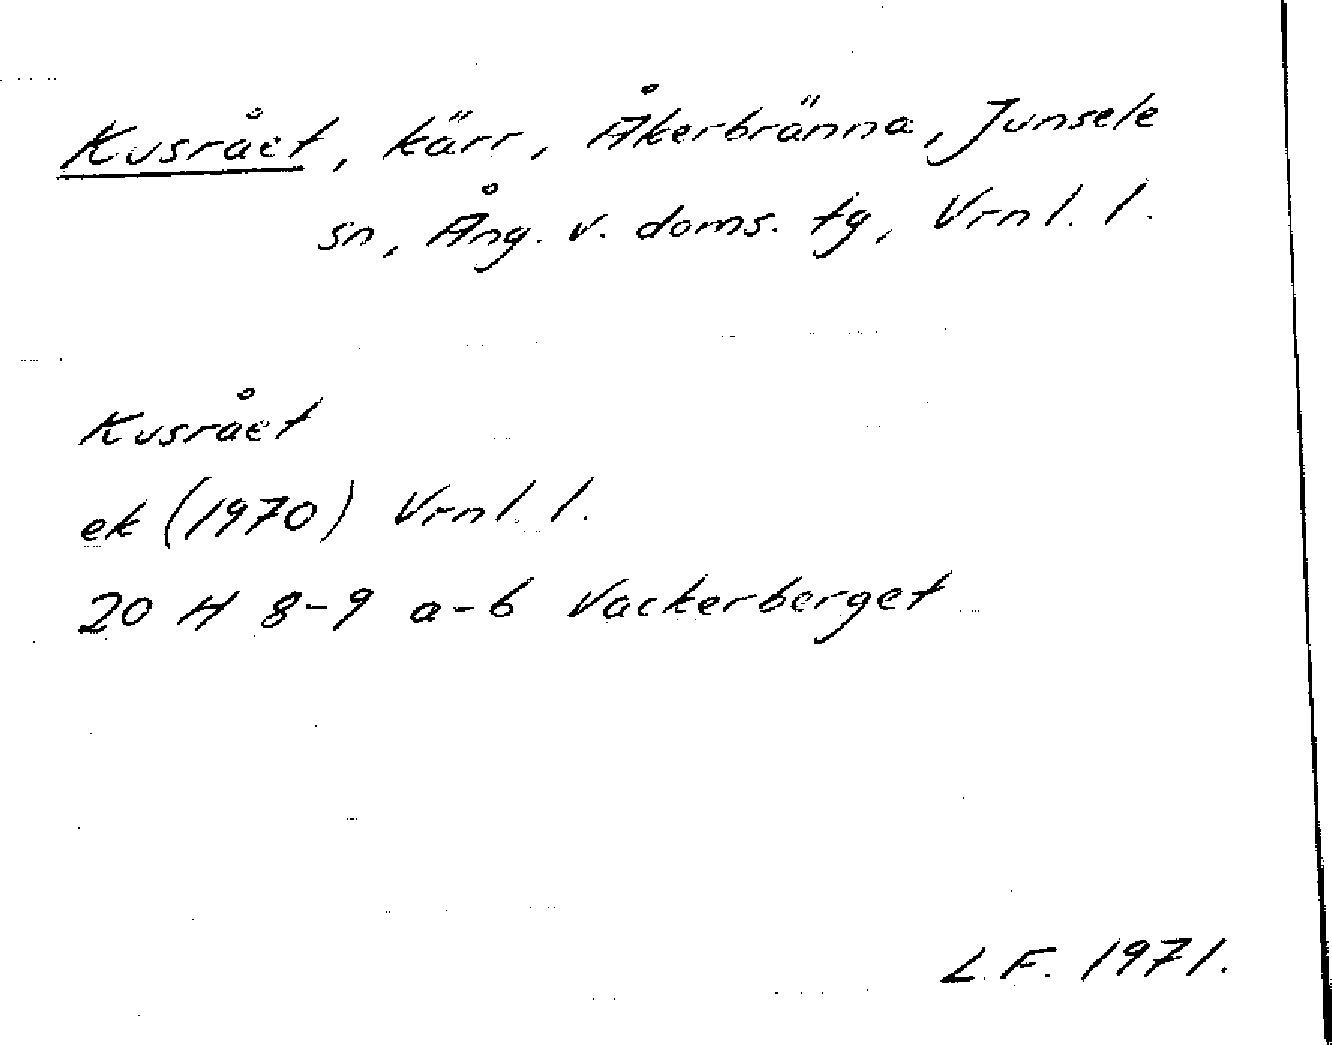 Kusrået, kärr, Åkerbränna, Junsele
sn, Ång. v. doms. tg, Vrnl. l.
Kusrået
ek (1970) Vrnl. l.
20 H 8-9 a-b Vackerberget
L. F. 1971.